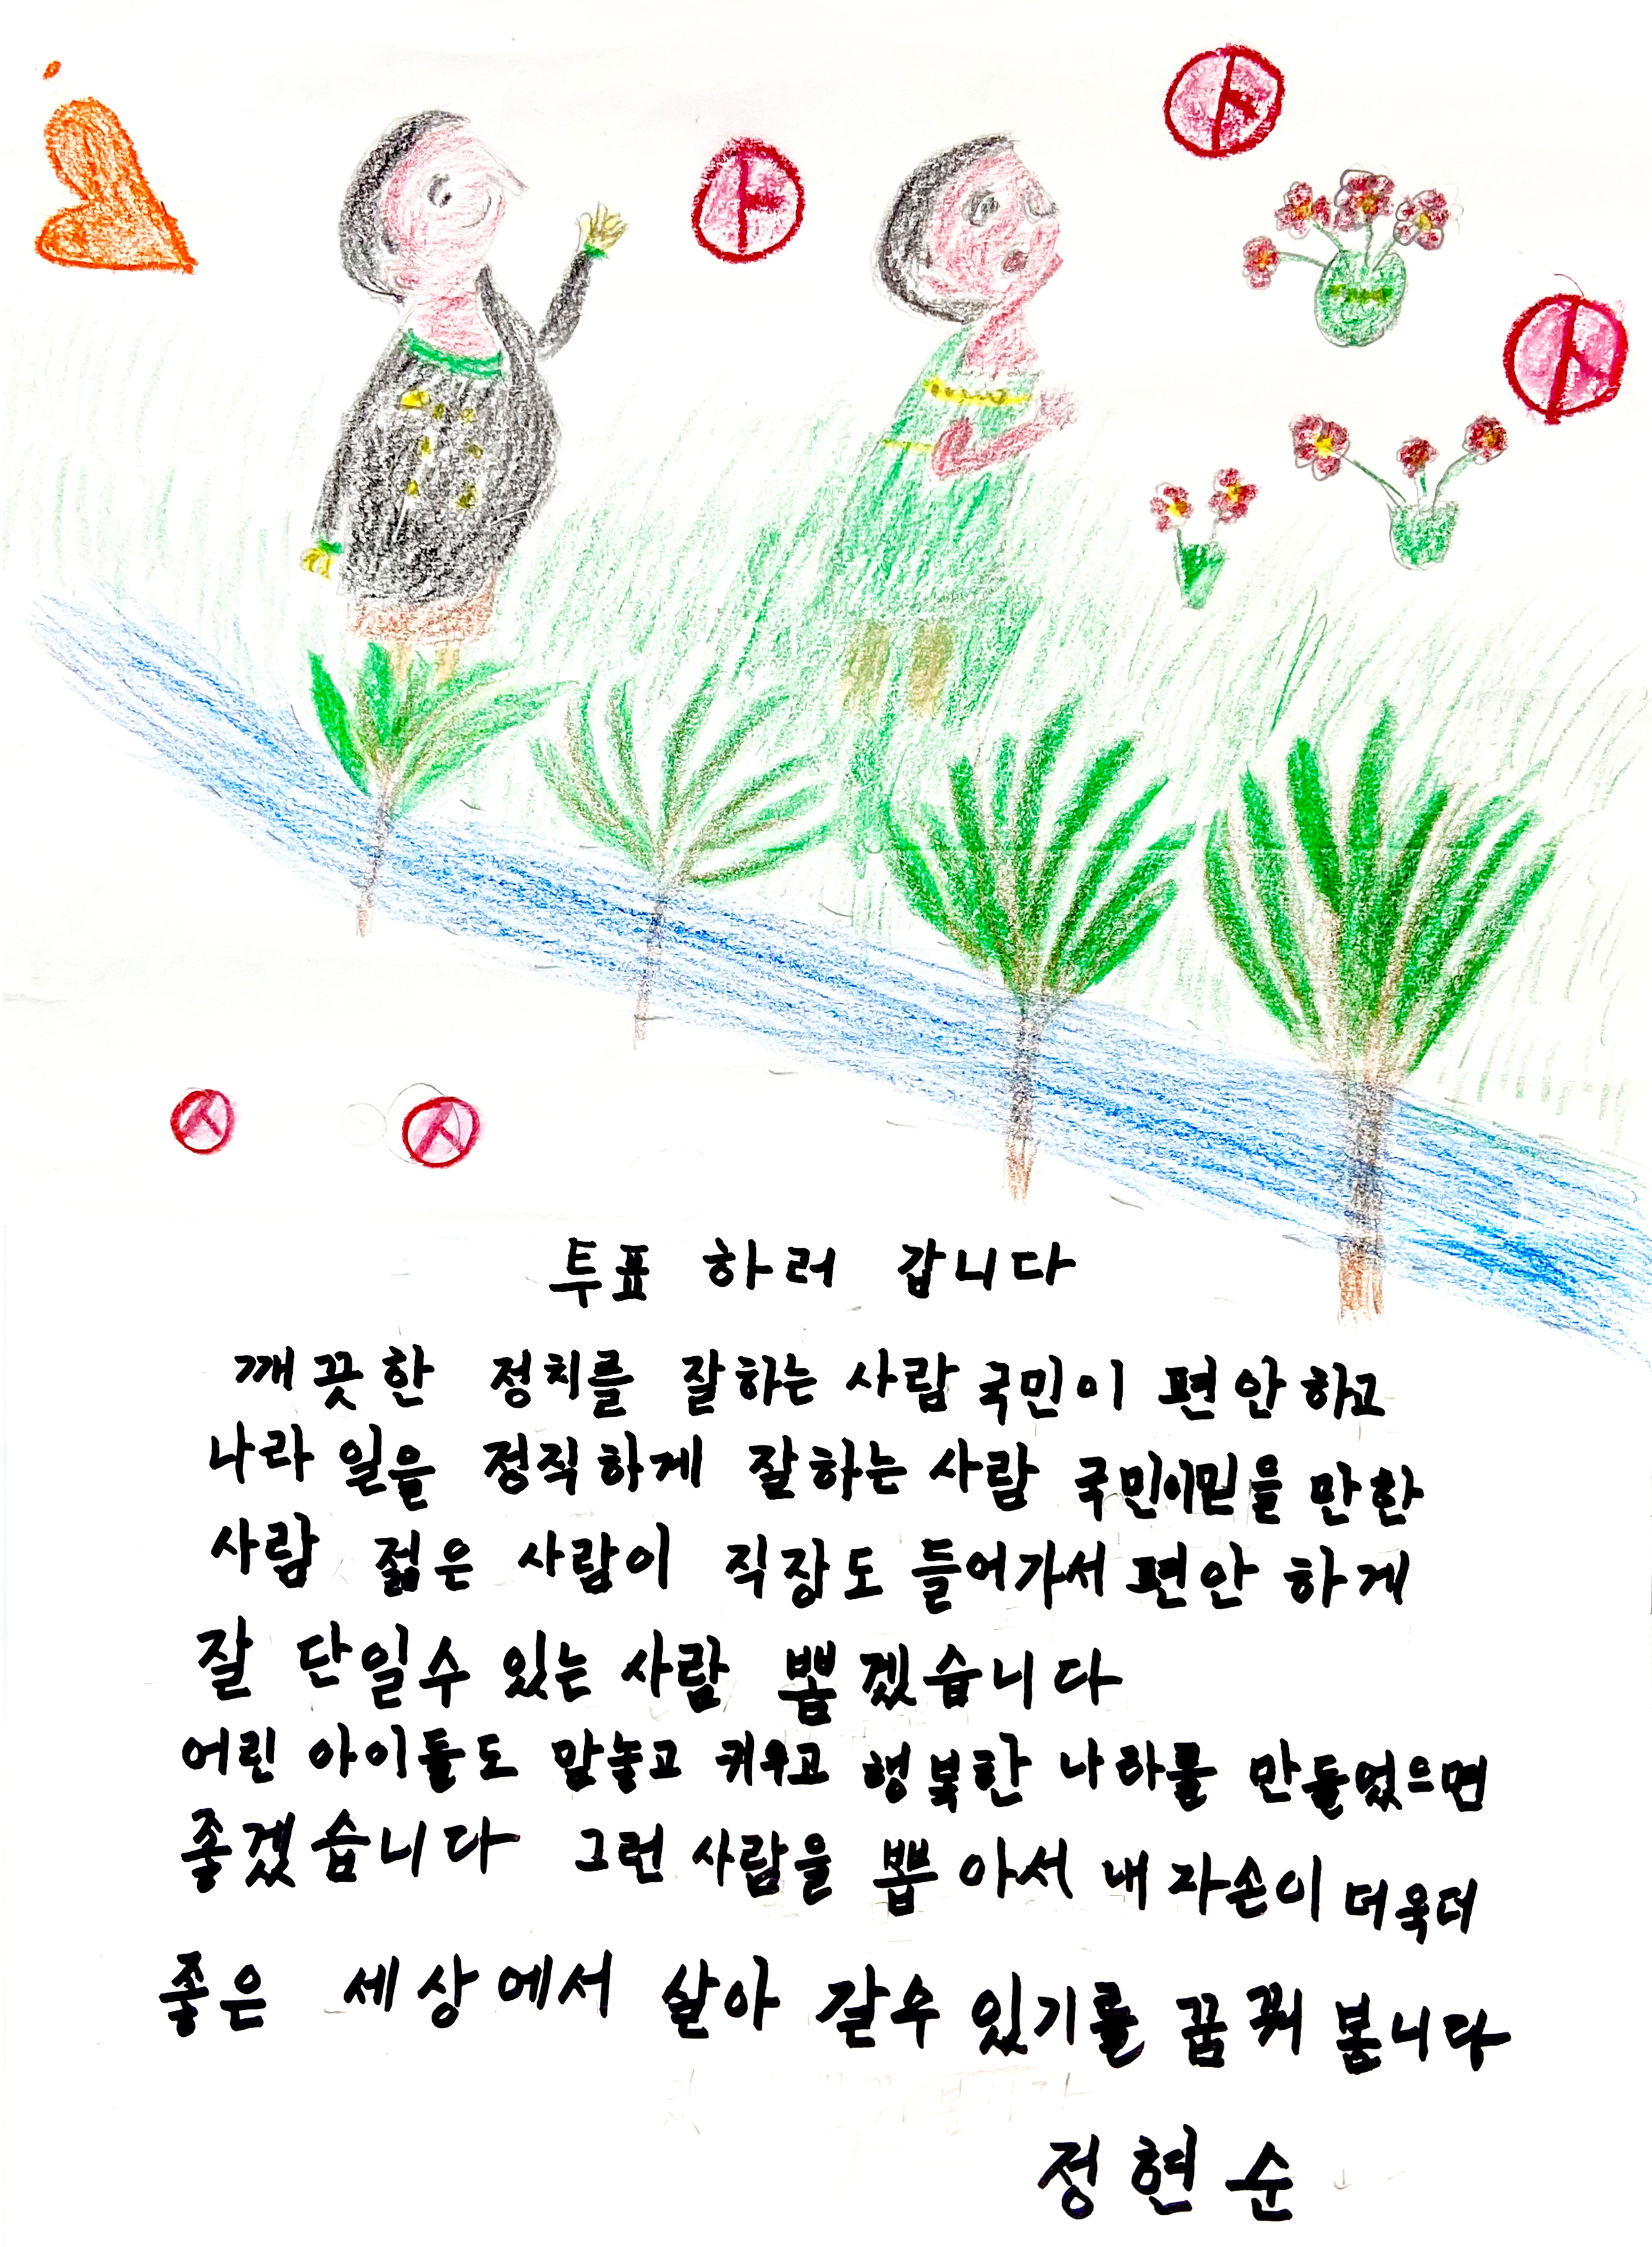 투표 하러 갑니다
깨끗한 정치를 잘하는 사람 국민이 편안하고
나라 일을 정직하게 잘하는 사람 국민이믿을 만한
사람 젊은 사람이 직장도 들어가서 편안 하게
잘 단일수 있는 사람 뽑겠습니다
어린 아이들도 맘놓고 키우고 행복한 나라를 만들었으면
좋겠습니다 그런 사람을 뽑아서 내 자손이 더욱더
좋은 세상에서 살아 갈수 있기를 꿈꿔 봅니다
정현순